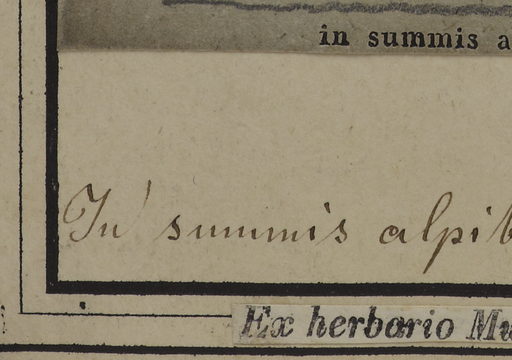 in summis a
In summis alpib
Ex herbario Mu